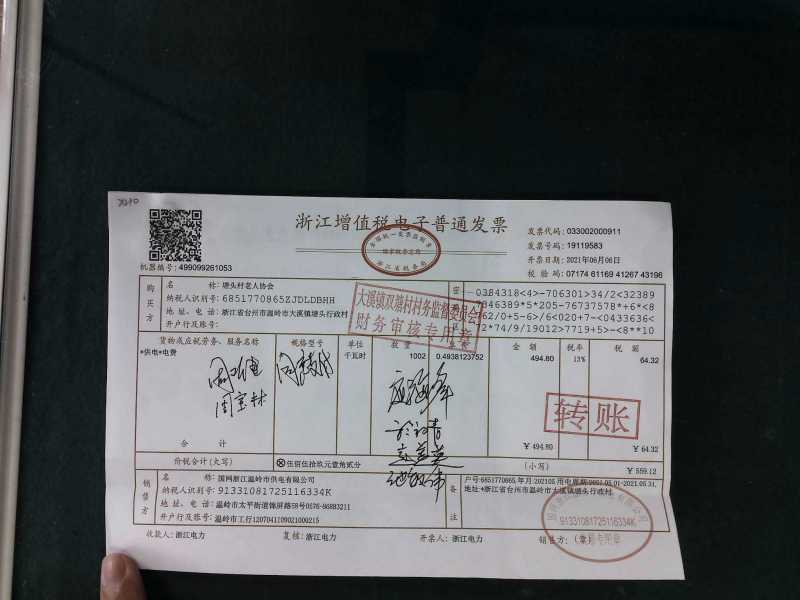 浙江增值税电子普通发票
全国统一发票监制章
国家税务总局
浙江省税务局
机器编号: 499099261053
发票代码: 033002000911
发票号码: 19119583
开票日期: 2021年06月06日
校验码: 07174 61169 41267 43196
购买方
名称: 塘头村老人协会
纳税人识别号: 6851770865ZJDLDBHH
地址、电话: 浙江省台州市温岭市大溪镇塘头行政村
开户行及账号:
密
区
0384318<4>-706301>34/2<32389
7846389*5*205-76737578*+6*<8
62/0+5-6>/6<020+7-<0433636<
72*74/9/19012>7719+5>-<8**10
大溪镇双塘村村务监督委员会
财务审核专用章
货物或应税劳务、服务名称 规格型号 单位 数量 单价 金额 税率 税额
*供电*电费 千瓦时 1002 0.4938123752 494.80 13% 64.32
周宝林
转账
合计 ￥494.80 ￥64.32
价税合计(大写) ⊗伍佰伍拾玖元壹角贰分 (小写) ￥559.12
销售方
名称: 国网浙江温岭市供电有限公司
纳税人识别号: 91331081725116334K
地址、电话: 温岭市太平街道锦屏路59号0576-86883211
开户行及账号: 温岭市工行1207041109021000215
备注
户号:6851770865,年月:202105,用电周期:2021.05.01-2021.05.31,
地址:浙江省台州市温岭市大溪镇塘头行政村,
91331081725116334K
发票专用章
收款人: 浙江电力 复核: 浙江电力 开票人: 浙江电力 销售方: (章)